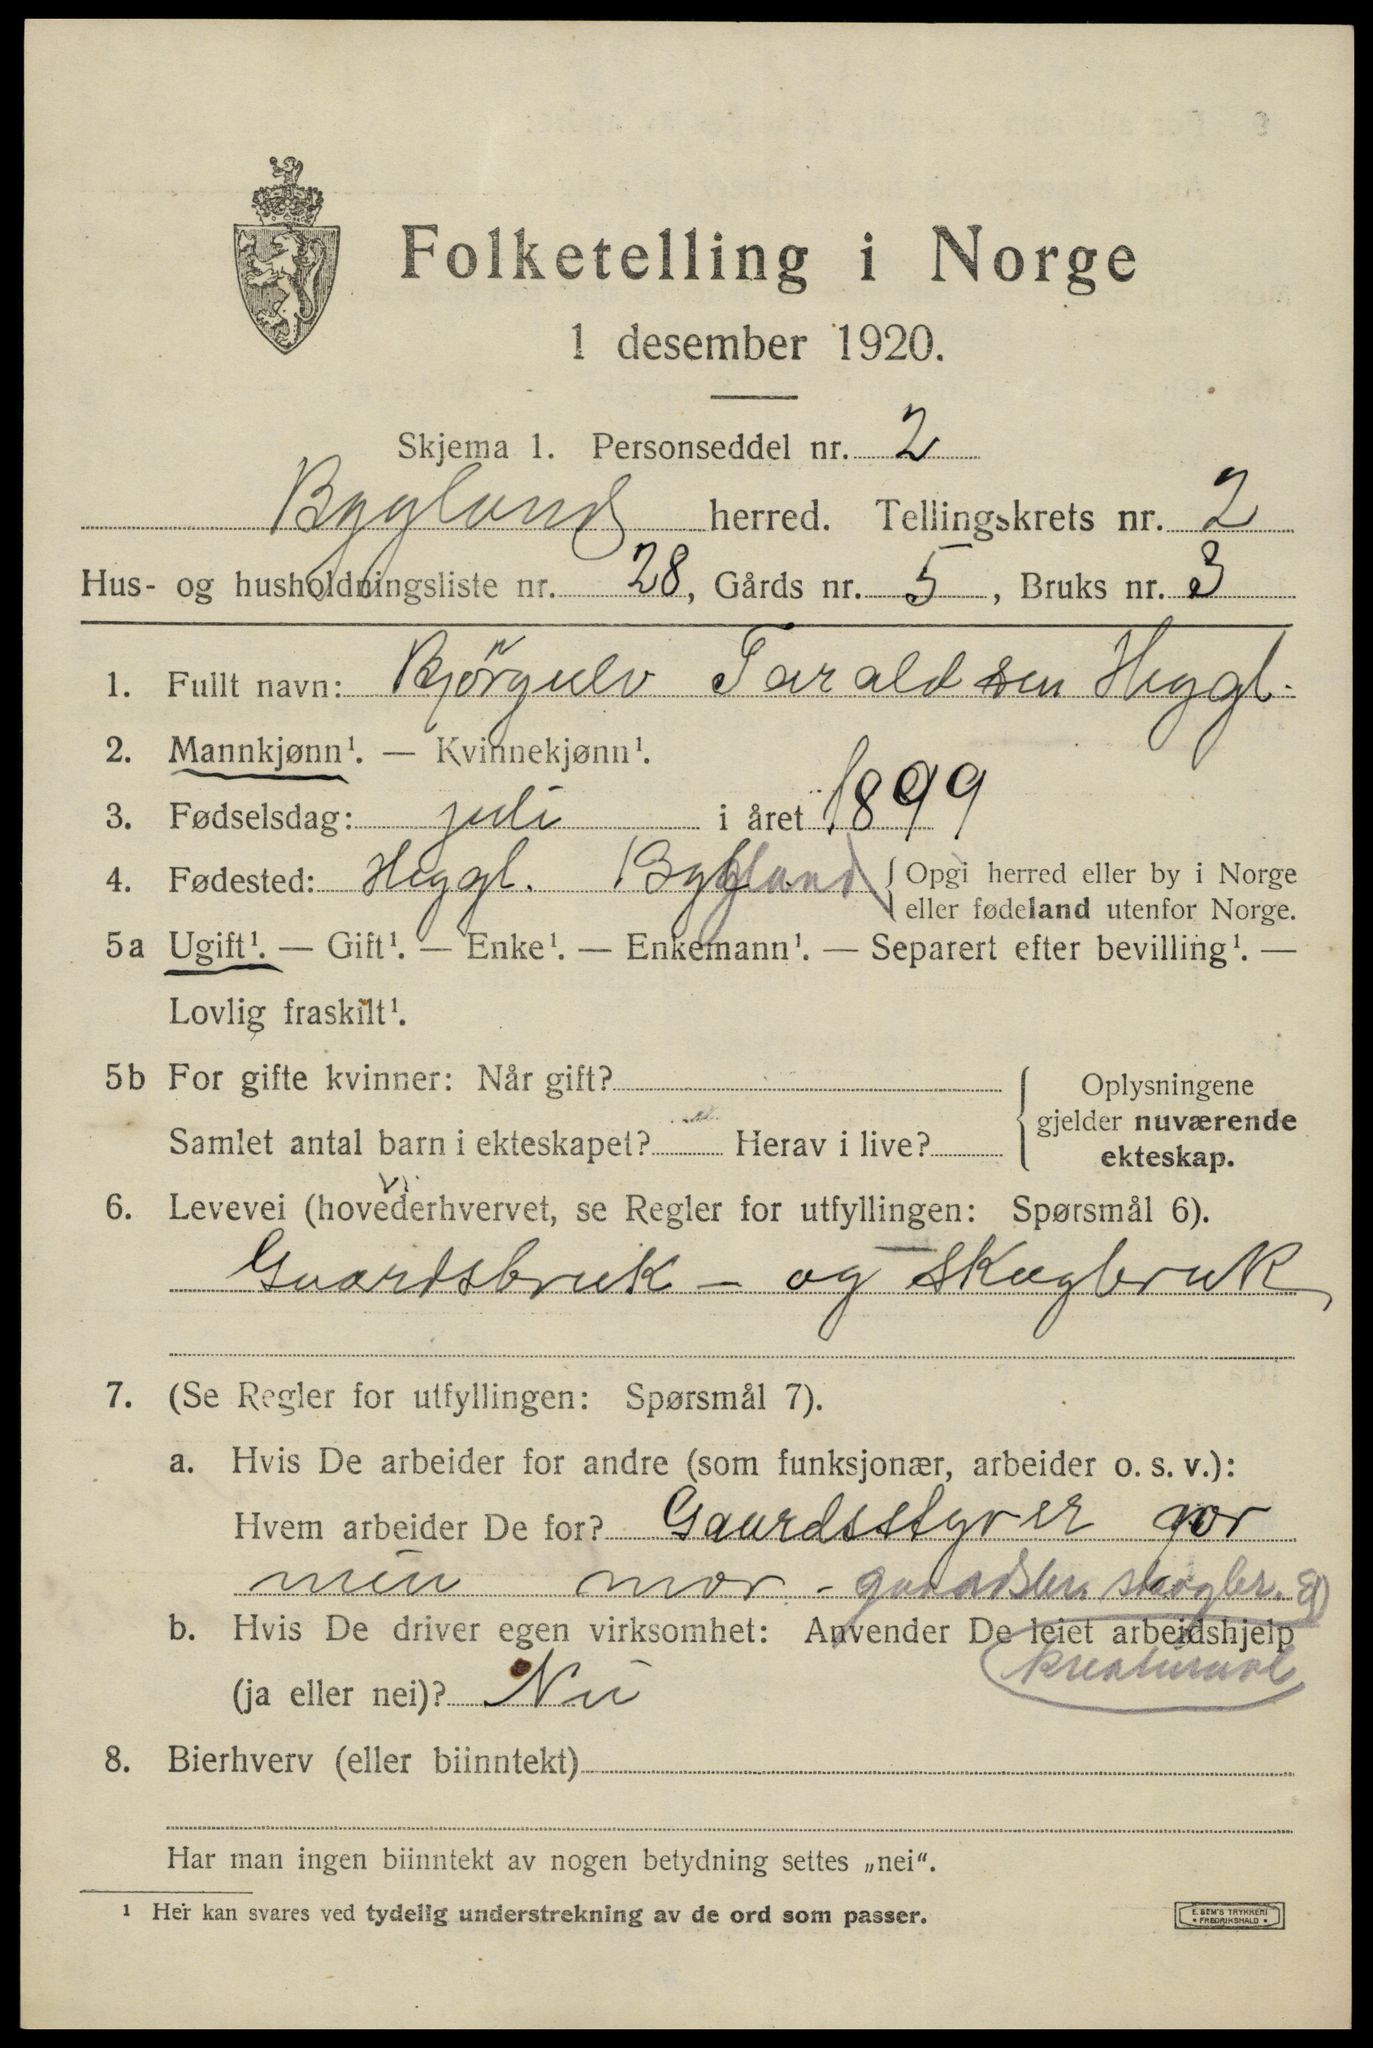 Folketelling i Norge
1 desember 1920.
Skjema 1. Personseddel nr. 2
Bygland herred. Tellingskrets nr. 2
Hus- og husholdningsliste nr. 28, Gårds nr. 5, Bruks nr. 3
1. Fullt navn: Bjørgulv Taraldsen Heggl.
2. Mannkjønn¹. — Kvinnekjønn¹.
3. Fødselsdag: juli i året 1899
4. Fødested: Heggl. Bygland { Opgi herred eller by i Norge
eller fødeland utenfor Norge.
5a Ugift¹. — Gift¹. — Enke¹. — Enkemann¹. — Separert efter bevilling¹. —
Lovlig fraskilt¹.
5b For gifte kvinner: Når gift?
Samlet antal barn i ekteskapet? Herav i live?
{ Oplysningene
gjelder nuværende
ekteskap.
6. Levevei (hovederhvervet, se Regler for utfyllingen: Spørsmål 6).
Gaardsbruk - og Skogbruk
7. (Se Regler for utfyllingen: Spørsmål 7).
a. Hvis De arbeider for andre (som funksjonær, arbeider o. s. v.):
Hvem arbeider De for? Gaardsstyrer for
min mor - gaardsbr. skogbr.
b. Hvis De driver egen virksomhet: Anvender De leiet arbeidshjelp
(ja eller nei)? Nei
8. Bierhverv (eller biinntekt)
Har man ingen biinntekt av nogen betydning settes „nei“.
¹ Her kan svares ved tydelig understrekning av de ord som passer.
E. SEM'S TRYKKERI
• FREDRIKSHALD •